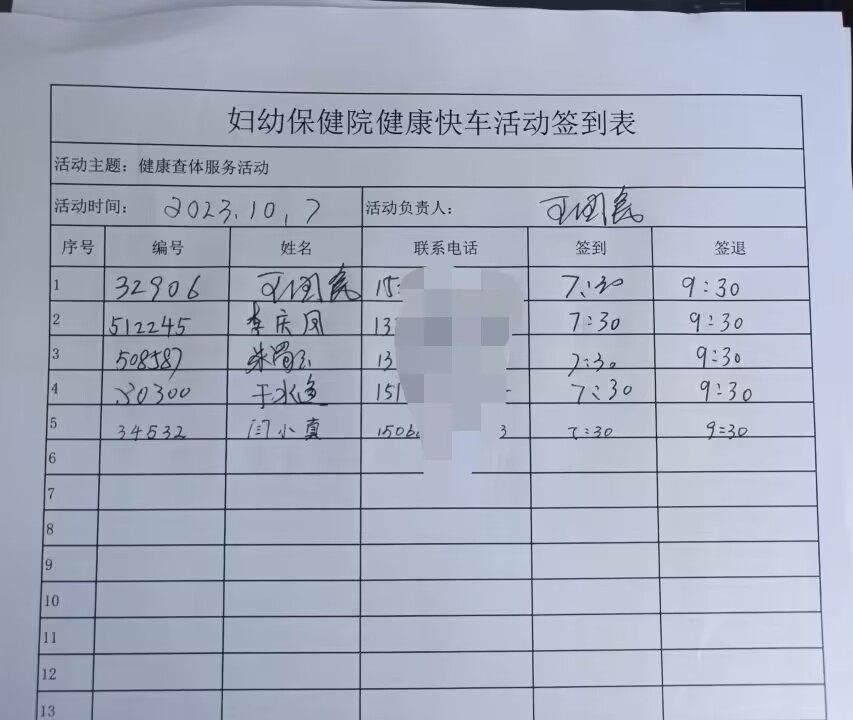 妇幼保健院健康快车活动签到表
活动主题：健康查体服务活动
活动时间： 2023.10.7 活动负责人：
序号 编号 姓名 联系电话 签到 签退
1 32906 15 7:30 9:30
2 512245 李庆凤 13 7:30 9:30
3 508587 13 7:30 9:30
4 30300 于水 151 7:30 9:30
5 34532 闫小真 1506 3 7:30 9:30
6
7
8
9
10
11
12
13